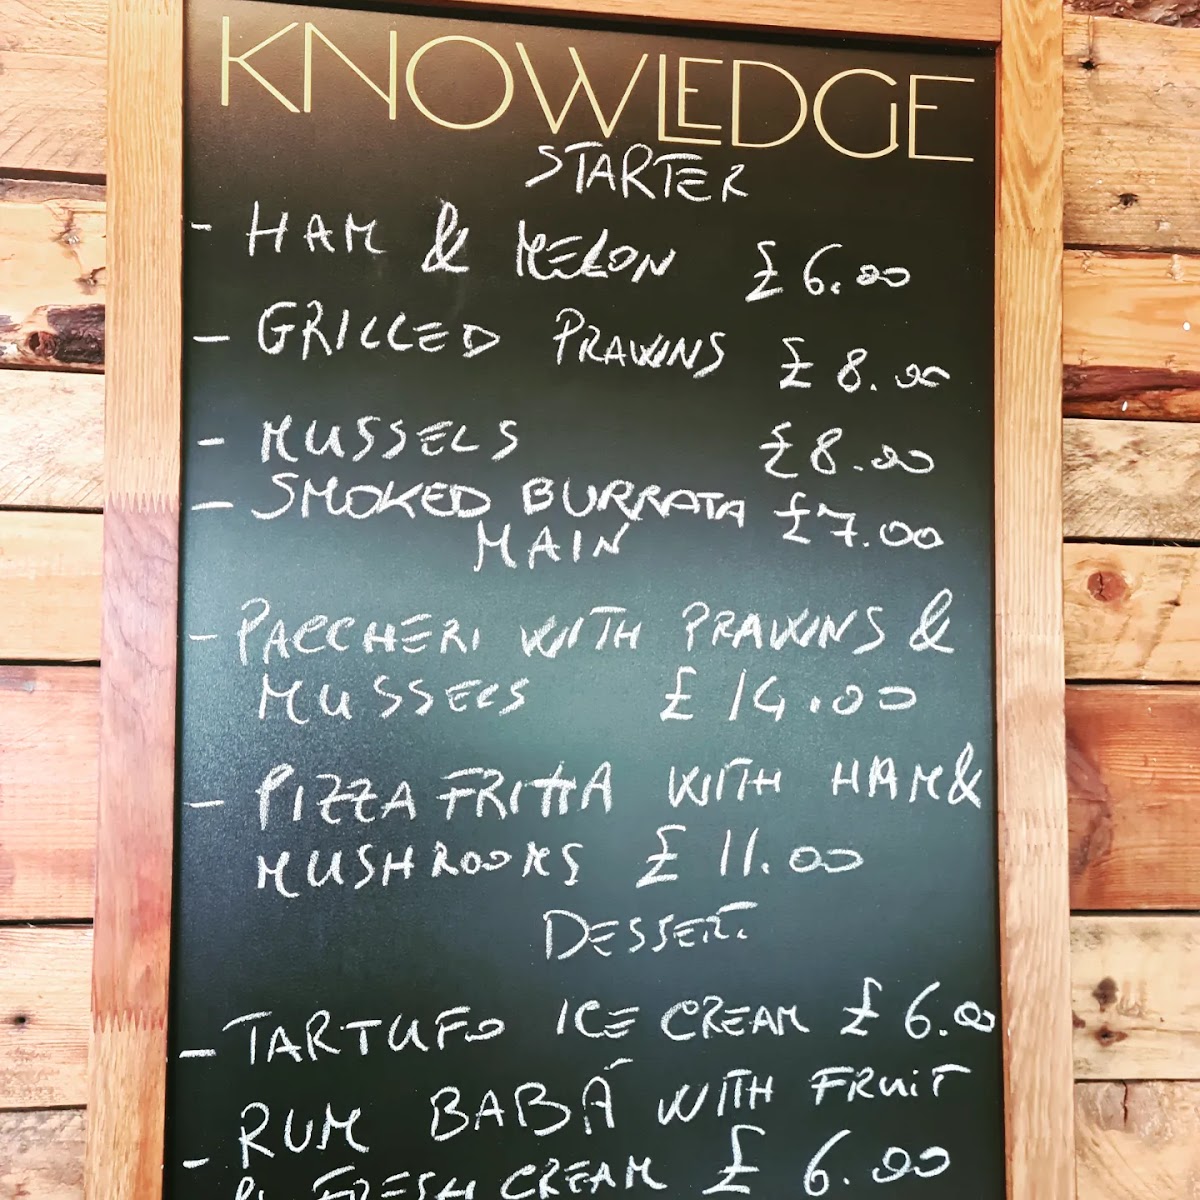 KNOWLEDGE
STARTER
- HAM & MELON £6.00
- GRILLED PRAWNS £8.00
- MUSSELS £8.00
- SMOKED BURRATA £7.00
MAIN
- PACCHERI WITH PRAWNS &
MUSSELS £14.00
- PIZZA FRITTA WITH HAM &
MUSHROOMS £11.00
DESSERT
- TARTUFO ICE CREAM £6.00
- RUM BABÁ WITH FRUIT
FRESH CREAM £6.00